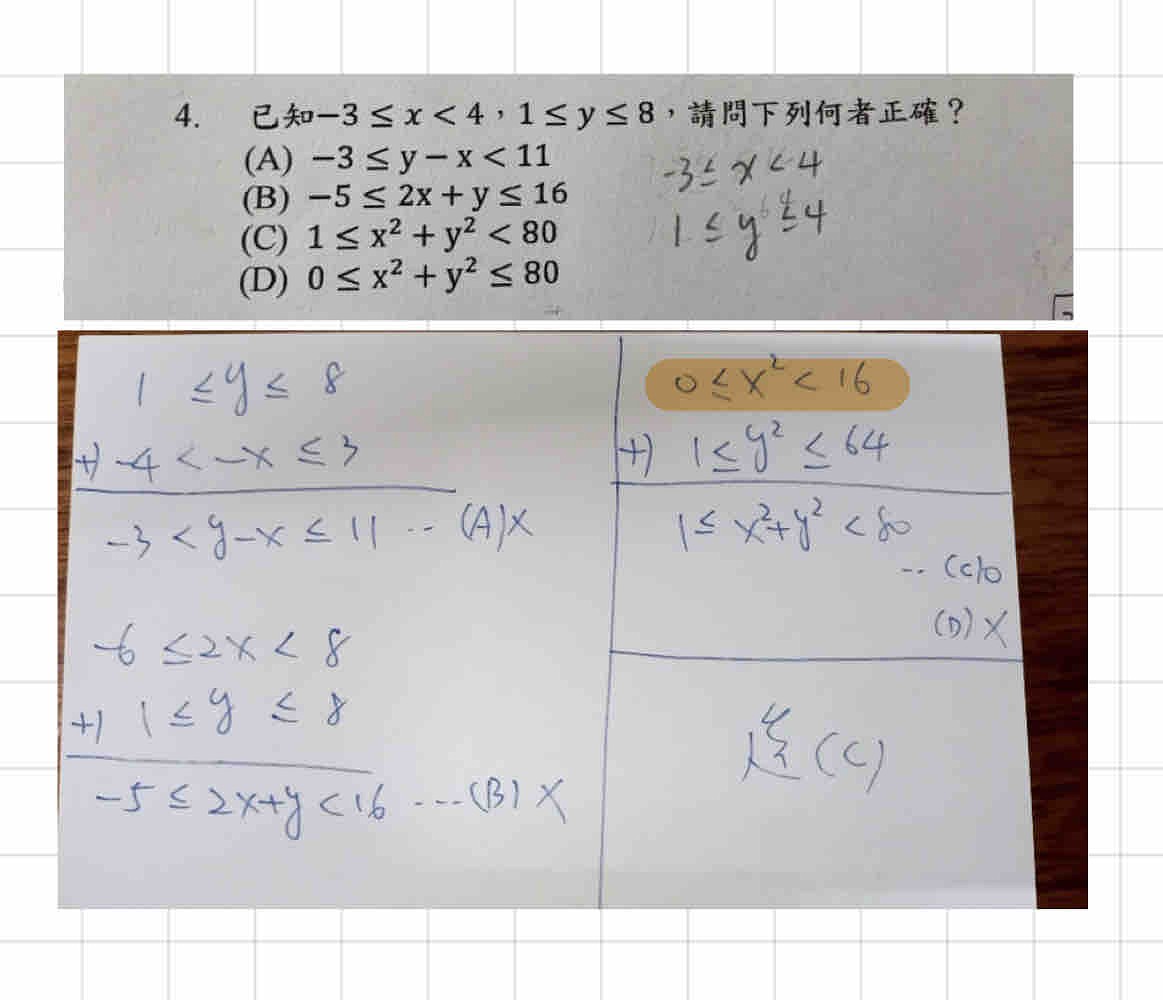 4. 已知−3 ≤ x < 4，1 ≤ y ≤ 8，請問下列何者正確？
(A) −3 ≤ y − x < 11
(B) −5 ≤ 2x + y ≤ 16
(C) 1 ≤ x² + y² < 80
(D) 0 ≤ x² + y² ≤ 80
-3 ≤ x < 4
1 ≤ y ≤ 4
1 ≤ y ≤ 8
+) -4 < -x ≤ 3
-3 < y-x ≤ 11 -- (A)X
-6 ≤ 2x < 8
+) 1 ≤ y ≤ 8
-5 ≤ 2x+y < 16 ---- (B) X
0 ≤ x² < 16
+) 1 ≤ y² ≤ 64
1 ≤ x²+y² < 80
-- (C)O
(D) X
選 (C)